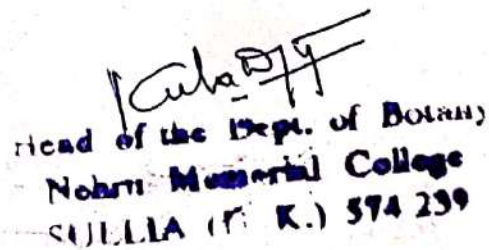 Head of the Dept. of Botany
Nehru Memorial College
SULLIA (D. K.) 574 239